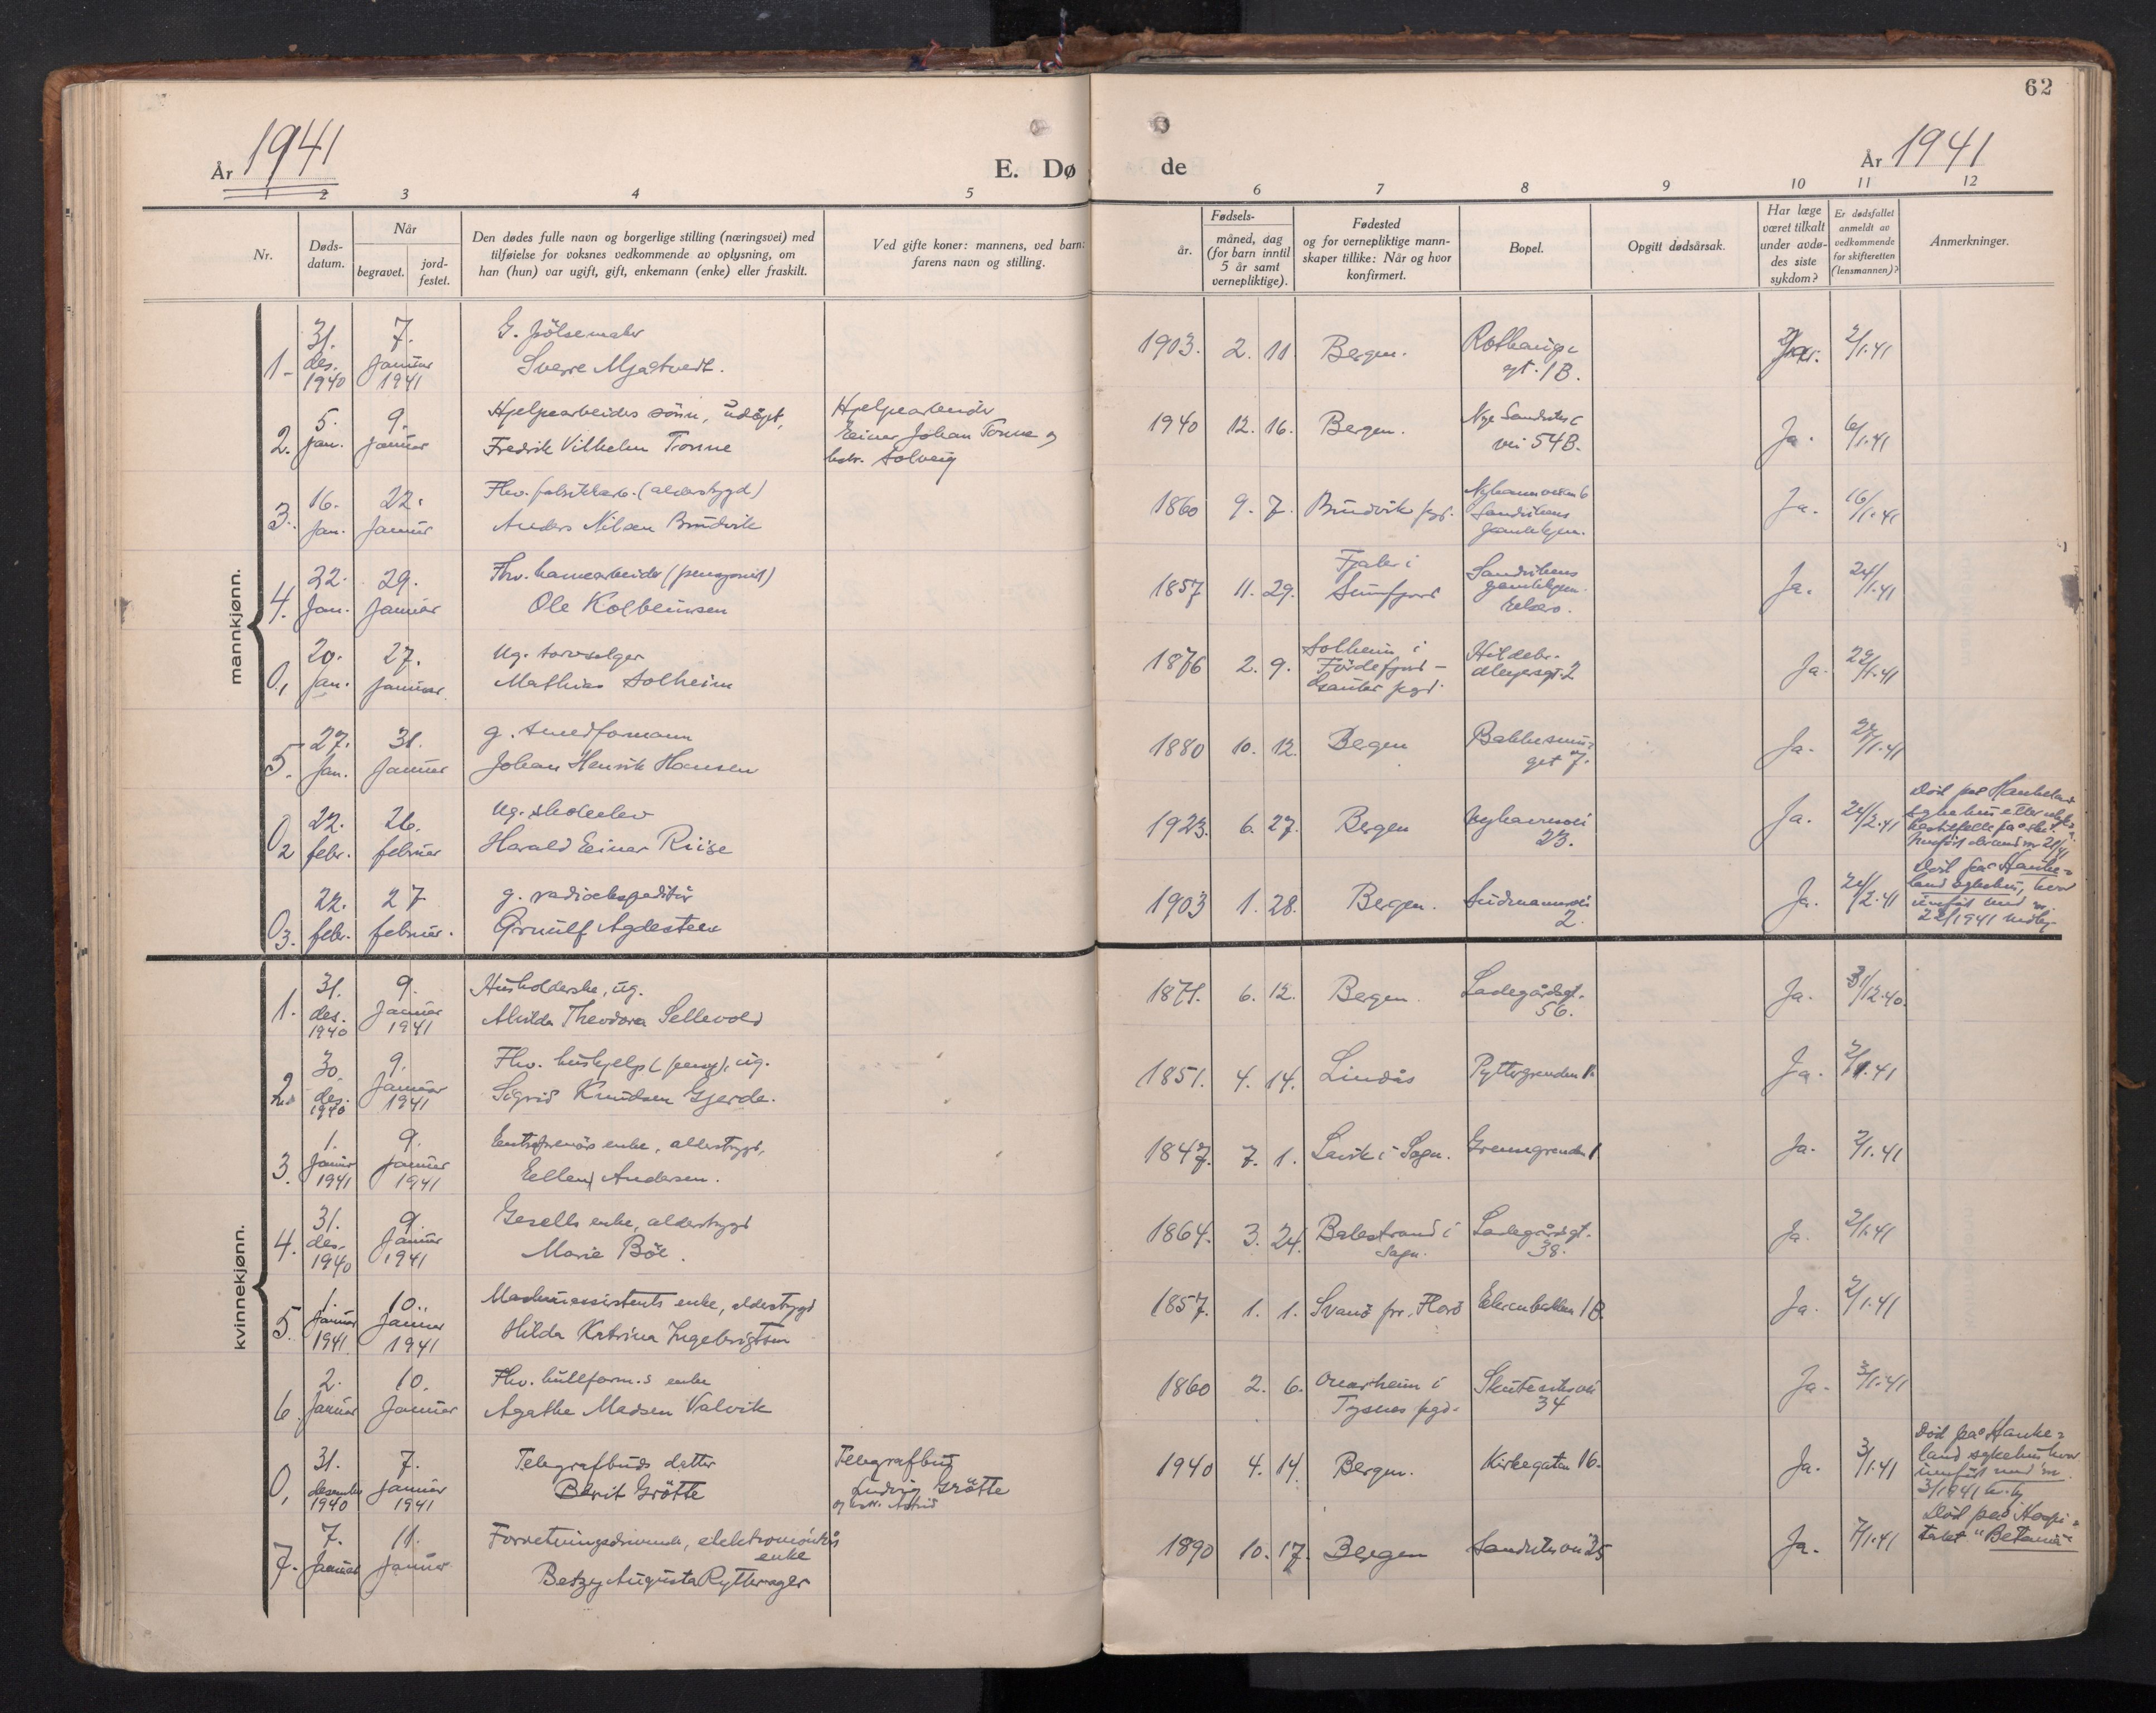 62
År 1941
E. Dø de
År 1941
1 2 3 4 5 6 7 8 9 10 11 12
Nr.
Døds-
datum.
Når
begravet.
jord-
festet.
Den dødes fulle navn og borgerlige stilling (næringsvei) med
tilføielse for voksnes vedkommende av oplysning, om
han (hun) var ugift, gift, enkemann (enke) eller fraskilt.
Ved gifte koner: mannens, ved barn:
farens navn og stilling.
Fødsels-
år.
måned, dag
(for barn inntil
5 år samt
vernepliktige).
Fødested
og for vernepliktige mann-
skaper tillike: Når og hvor
konfirmert.
Bopel.
Opgitt dødsårsak.
Har læge
været tilkalt
under avdø-
des siste
sykdom?
Er dødsfallet
anmeldt av
vedkommende
for skifteretten
(lensmannen)?
Anmerkninger.
mannkjønn.
1. 31. des. 1940 7. Januar 1941
G. pölsemaker
Sverre Mjatvedt.
1903. 2. 11 Bergen.
gt. 1B.
2/1.41
2. 5. Jan. 9. Januar
Hjelpearbeiders sönn, udöpt,
Fredrik Vilhelm Tonne
Hjelpearbeider
Einar Johan Tonne og
hstr. Solveig
1940 12. 16. Bergen.
Nye Sandviks
vei 54B.
Ja. 6/1.41
3. 16. Jan. 22. Januar
Fhv. fabrikkarb. (alderstrygd)
Anders Nilsen Brudvik
1860 9. 7. Brudvik pgd.
Sandvikens
gamlehjem.
Ja. 16/1.41
4. 22. Jan. 29. Januar
Fhv. havnearbeider (pensjonist)
Ole Kolbeinsen
1857 11. 29.
Fjaler i
Sunnfjord
Sandvikens
gamlehjem.
Ja. 24/1.41
0, 20. Jan. 27. Januar.
Ug. torvselger
Mathias Solheim
1876 2. 9.
Solheim i
Fördefjord -
pgd.
Hildebr.
Meyersgt. 2
Ja. 22/1.41
5. 27. Jan. 31. Januar
g. smedformann
Johan Henrik Hansen
1880 10. 12. Bergen
7.
Ja. 27/1.41
0 2 22. febr. 26. februar
Ug. skoleelev
Harald Einar Riise
1923. 6. 27. Bergen
Nyhavnsvei
23.
Ja. 24/2.41
Död på Haukeland
sykehus etter
0 3. 22. febr. 27 februar.
g. radioekspeditör
Ørnulf Agdesteen
1903 1. 28. Bergen.
2.
Ja. 24/2.41
Död på Hauke=
land sykehus, hvor
innfört med nr.
22/1941
kvinnekjønn.
1. 31. des. 1940 9. Januar 1941
Husholderske, ug.
Alvilda Theodora Sellevold
1871. 6. 12. Bergen.
Ladegårdsgt.
56.
Ja. 31/12.40.
2. 30. des. 1940 9. Januar 1941
Fhv. hushjelp (pensj), ug.
Sigrid Knudsen Gjerde.
1851. 4. 14. Lindås
Pyttergrenden 1.
Ja. 2/1.41
3. 1. Januar 1941 9. Januar 1941
Entreprenörs enke, alderstrygd,
Ellen Andersen.
1847. 7. 1. Lavik i Sogn.
Grønnegrenden 1
Ja. 2/1.41
4. 31. des. 1940 9. Januar 1941
Gesells enke, alderstrygd
Marie Böe.
1864. 3. 24.
Balestrand i
Sogn.
Ladegårdsgt.
38.
Ja. 2/1.41
5. 1. Januar 1941 10. Januar 1941
Maskinassistents enke, alderstrygd
Hilda Katrina Ingebrigtsen
1857. 1. 1. Svanö pr. Florö
1B.
Ja. 2/1.41
6. 2. Januar 10. Januar
Fhv. bullform.s enke
Agathe Madsen Valvik
1860 2. 6.
Onarheim i
Tysnes pgd.
Skuteviksvei
34
Ja. 3/1.41
0, 31. desember 1940 7. Januar 1941
Telegrafbuds datter
Berit Grötte
Telegrafbud
Ludvig Grötte
og hstr. Astrid
1940 4. 14. Bergen.
Kirkegaten 16.
Ja. 3/1.41
Död på Hauke=
land sykehus hvor
innfört med nr.
3/1941
7. 7. Januar 11. Januar
Forretningsdrivende, elektromontörs
enke
Betzy Augusta Rytterager
1890 10. 17. Bergen
Sandviksvei 25
Ja. 7/1.41
Död på Hospi=
talet "Betania"